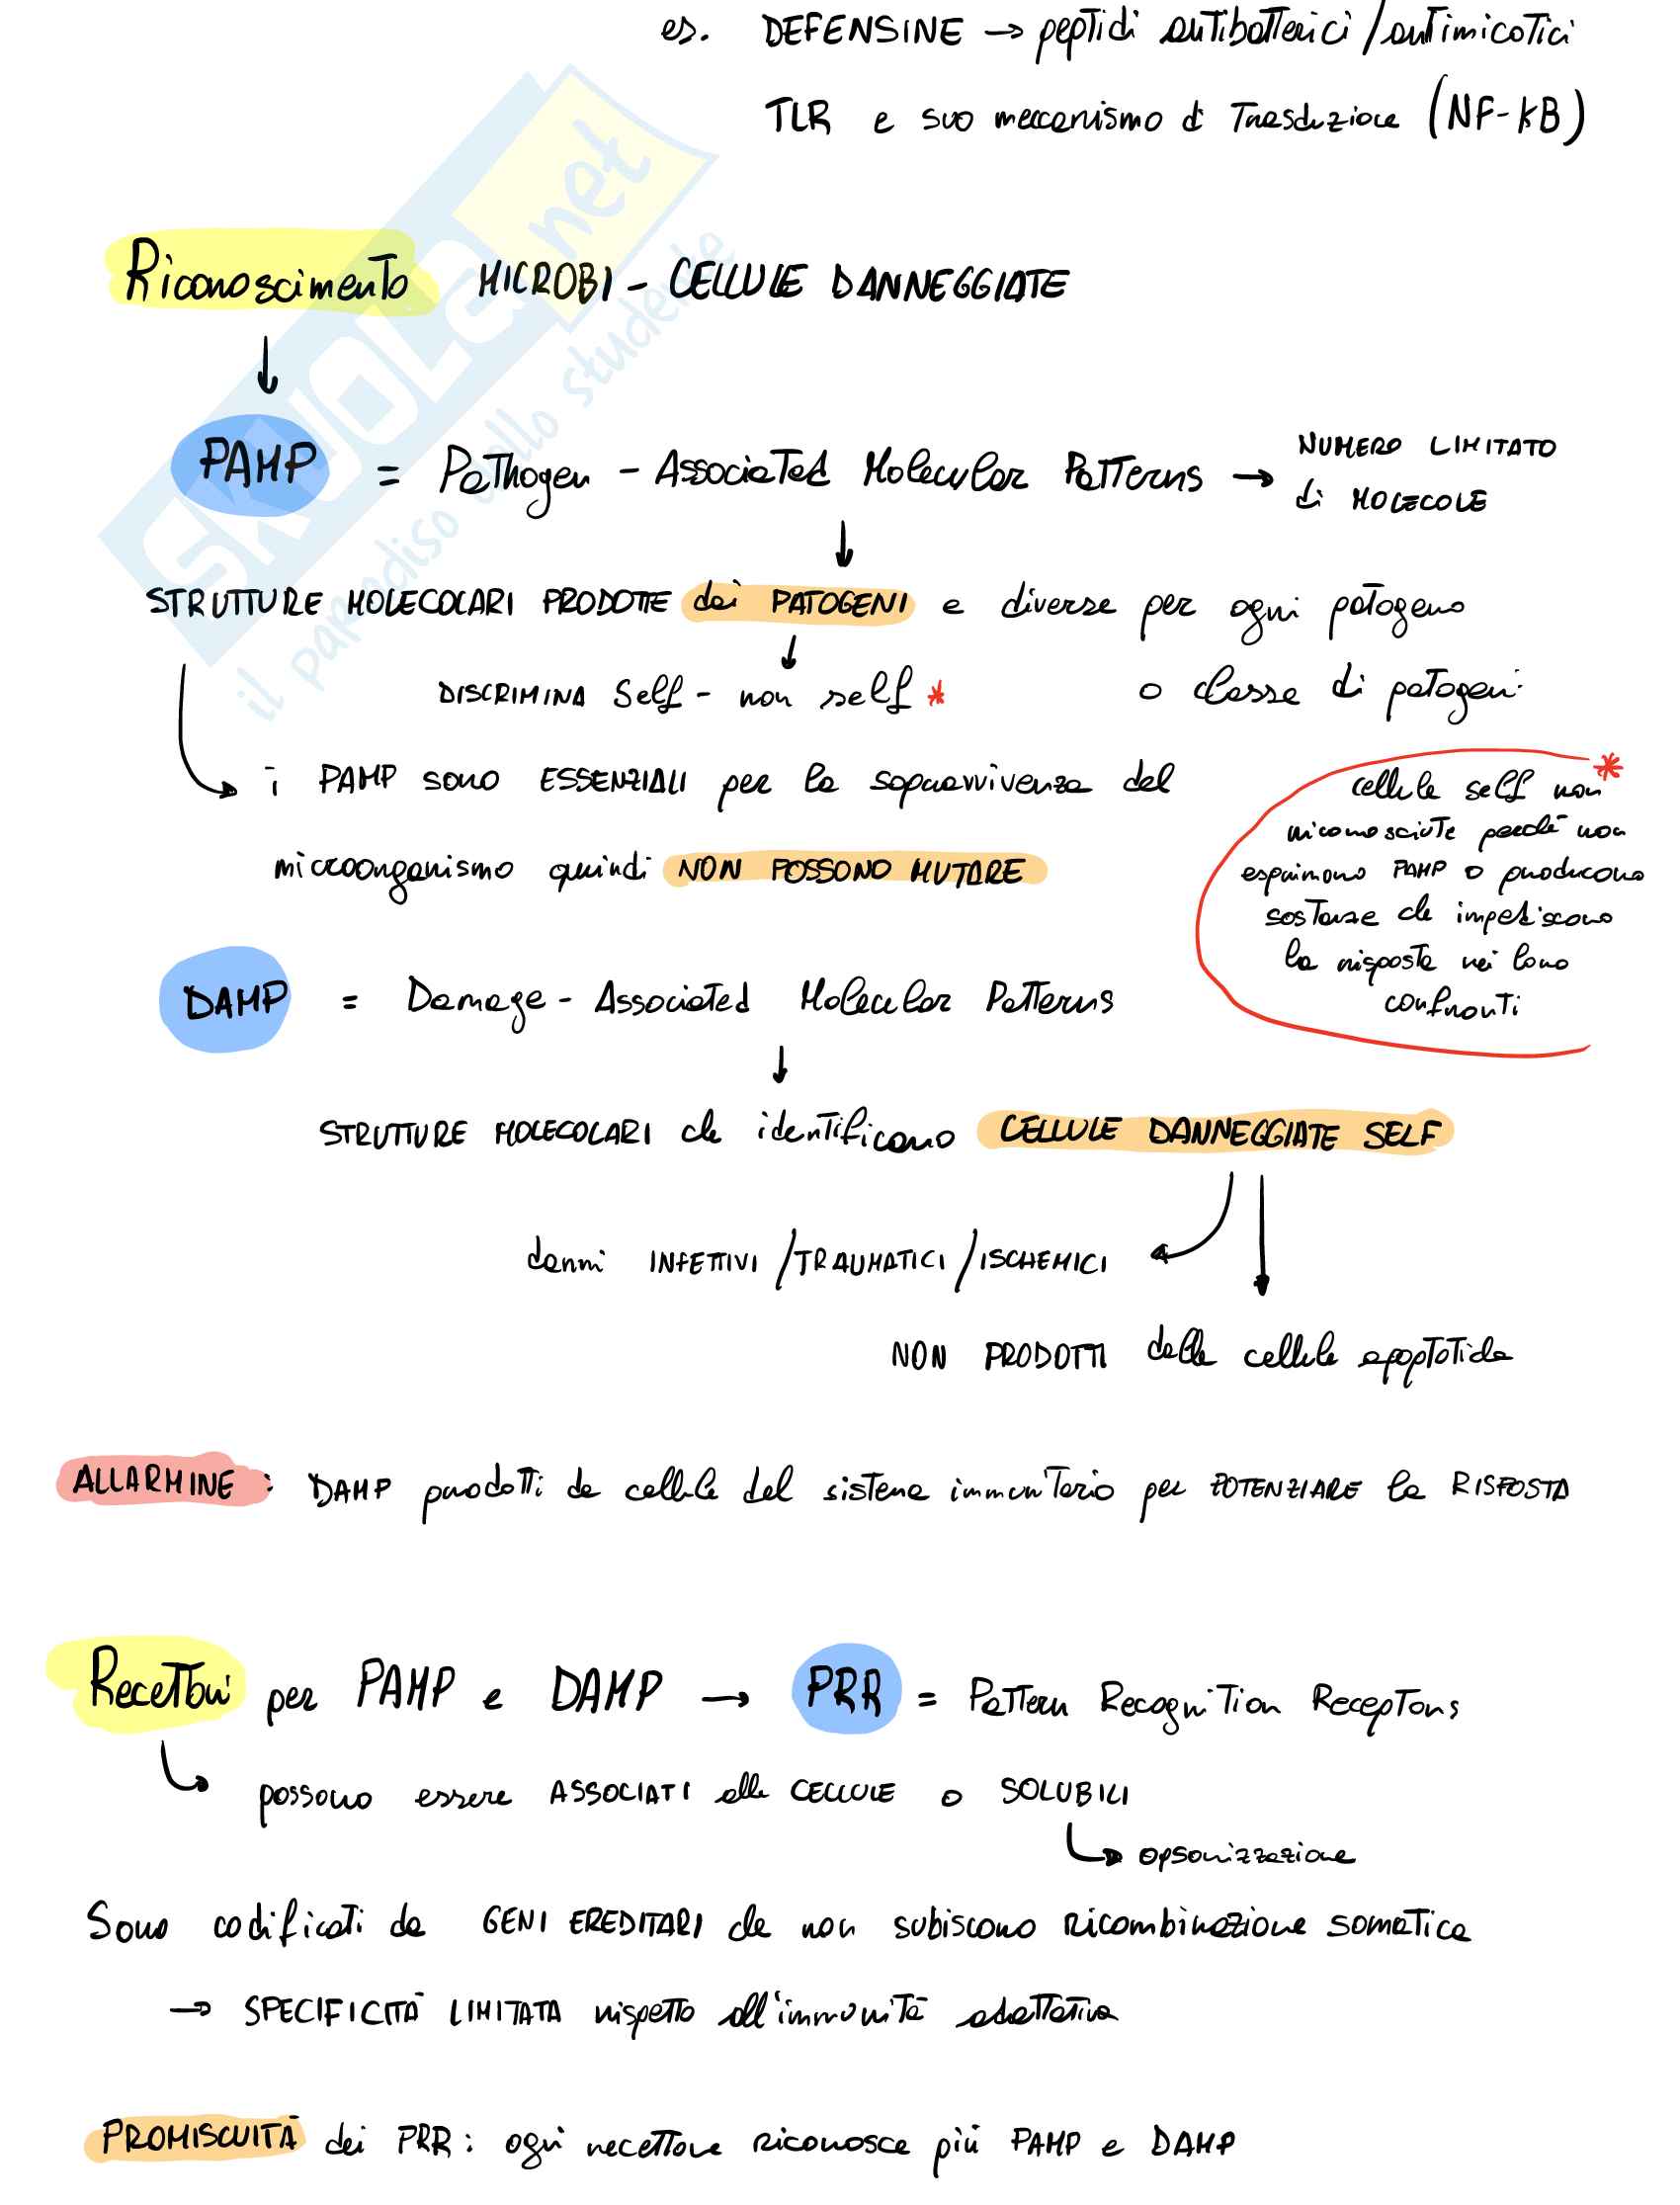 es. DEFENSINE → peptidi antibatterici/antimicotici
TLR e suo meccanismo di Trasduzione (NF-kB)
Riconoscimento MICROBI - CELLULE DANNEGGIATE
↓
PAMP = Pathogen - Associated Molecular Patterns → NUMERO LIMITATO
di MOLECOLE
↓
STRUTTURE MOLECOLARI PRODOTTE dai PATOGENI e diverse per ogni patogeno
o classe di patogeni
↓
DISCRIMINA Self - non self *
→ i PAMP sono ESSENZIALI per la sopravvivenza del
microorganismo quindi NON POSSONO MUTARE
*
cellule self non
riconosciute perché non
esprimono PAMP o producono
sostanze che impediscono
la risposta nei loro
confronti
DAMP = Damage - Associated Molecular Patterns
↓
STRUTTURE MOLECOLARI che identificano CELLULE DANNEGGIATE SELF
danni INFETTIVI/TRAUMATICI/ISCHEMICI ←
↓
NON PRODOTTI dalle cellule apoptotiche
ALLARMINE : DAMP prodotti da cellule del sistema immunitario per POTENZIARE la RISPOSTA
Recettori per PAMP e DAMP → PRR = Pattern Recognition Receptors
→ possono essere ASSOCIATI alle CELLULE o SOLUBILI
→ opsonizzazione
Sono codificati da GENI EREDITARI che non subiscono ricombinazione somatica
→ SPECIFICITÀ LIMITATA rispetto all'immunità adattativa
PROMISCUITÀ dei PRR : ogni recettore riconosce più PAMP e DAMP
SKUOLA.net
il paradiso dello studente